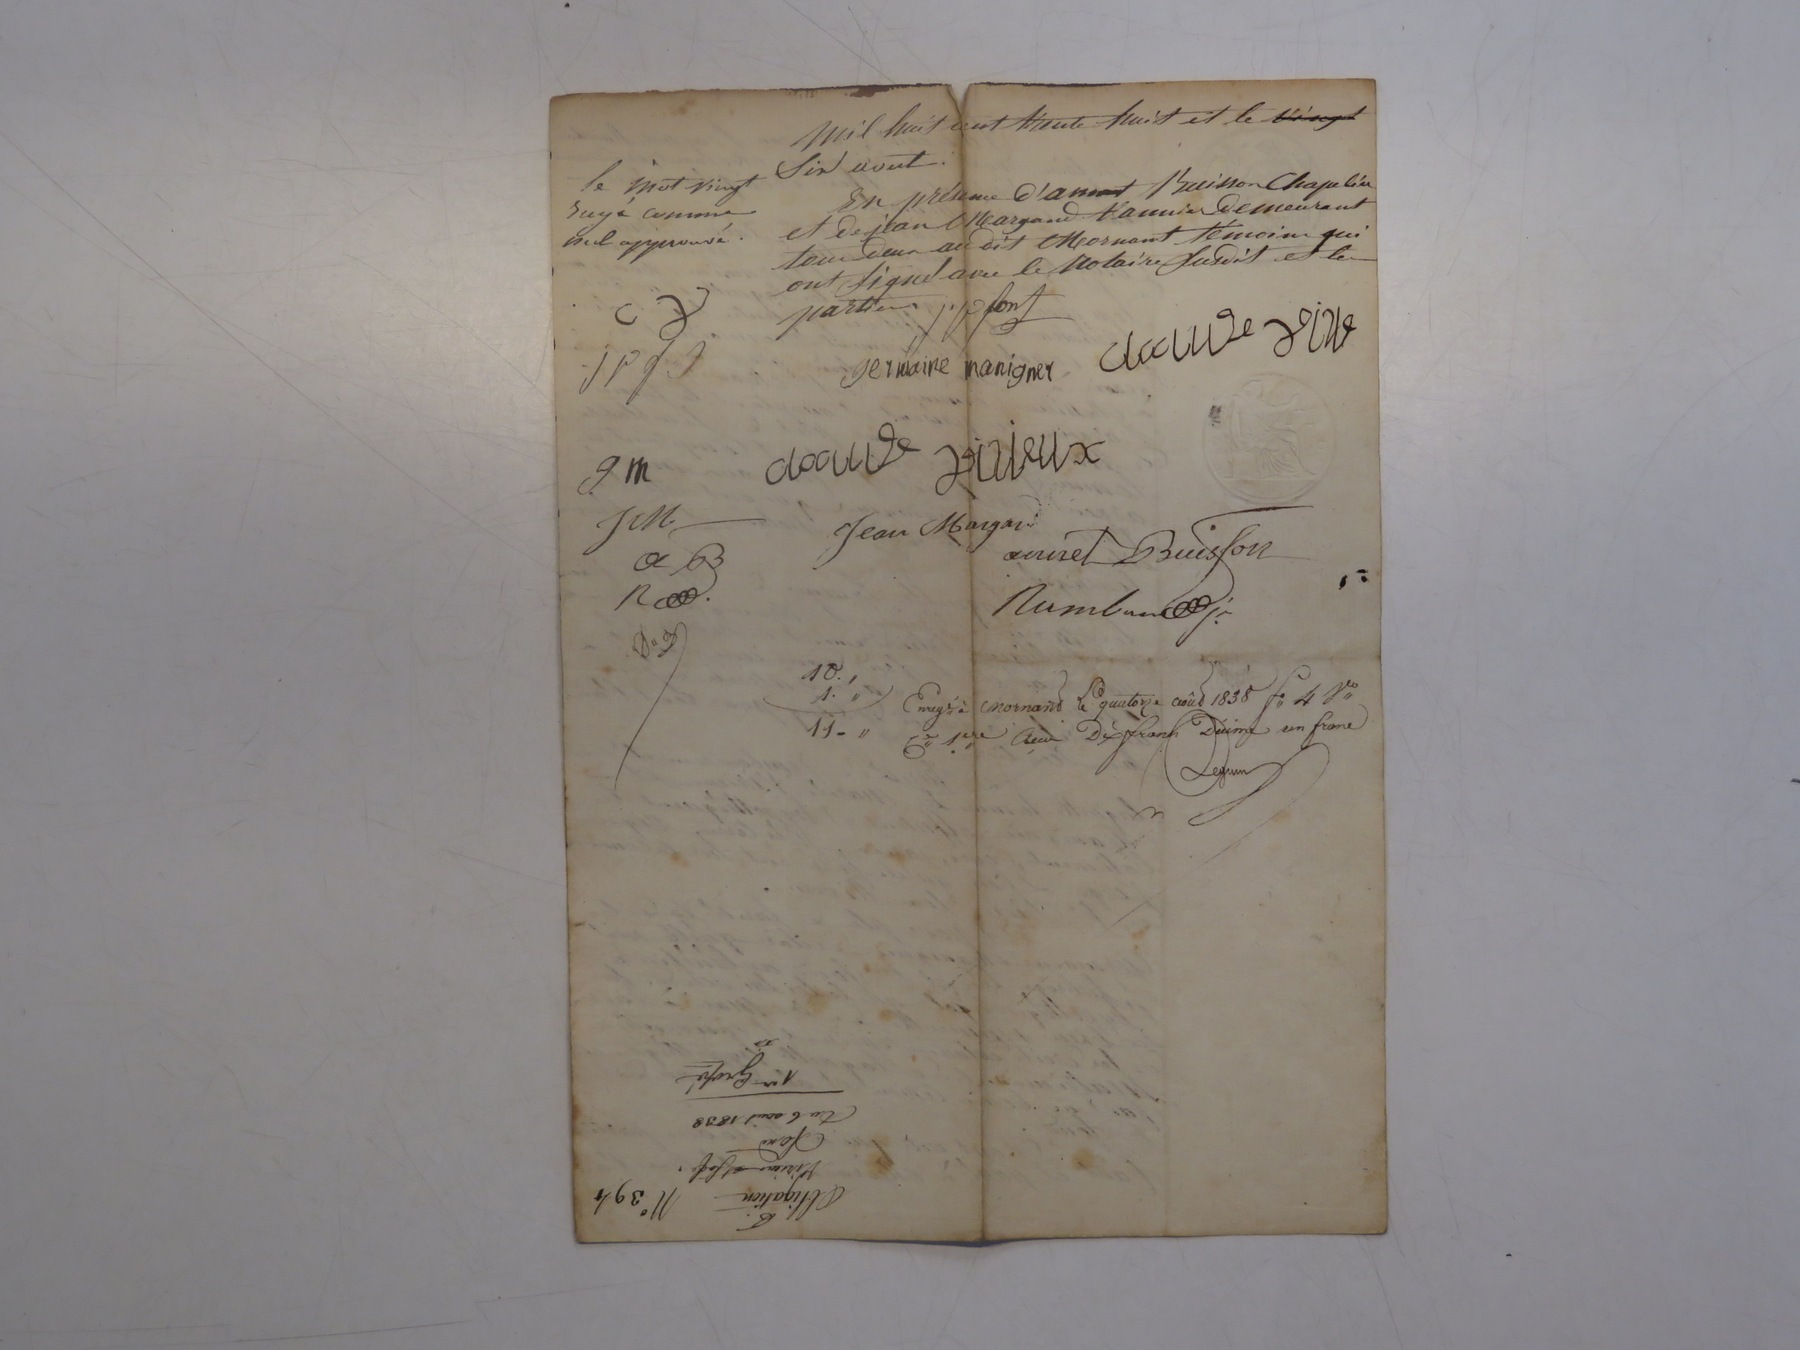 mil huit cent trente huit et le vingt
Six aout.
En présence d'amet Buisson Chapelier
et de jean Margand vannier demeurant
tous deux au dit Mornant témoins qui
ont Signé avec le Notaire Susdit et les
parties
le mot vingt
rayé comme
nul approuvé.
C V
j p f
jermaine manigner
claude
claude virieux
g. m
J M
Jean Margan
a B
annet Buisson
R
10. "
1. "
11 - "
Enregé à Mornand le quatorze août 1838 fo 4 Vo
Co 1re Reçu Dix francs Décime un franc
N° 394
Obligation
Virieux
font
Du 6 aout 1838
1re Grosse